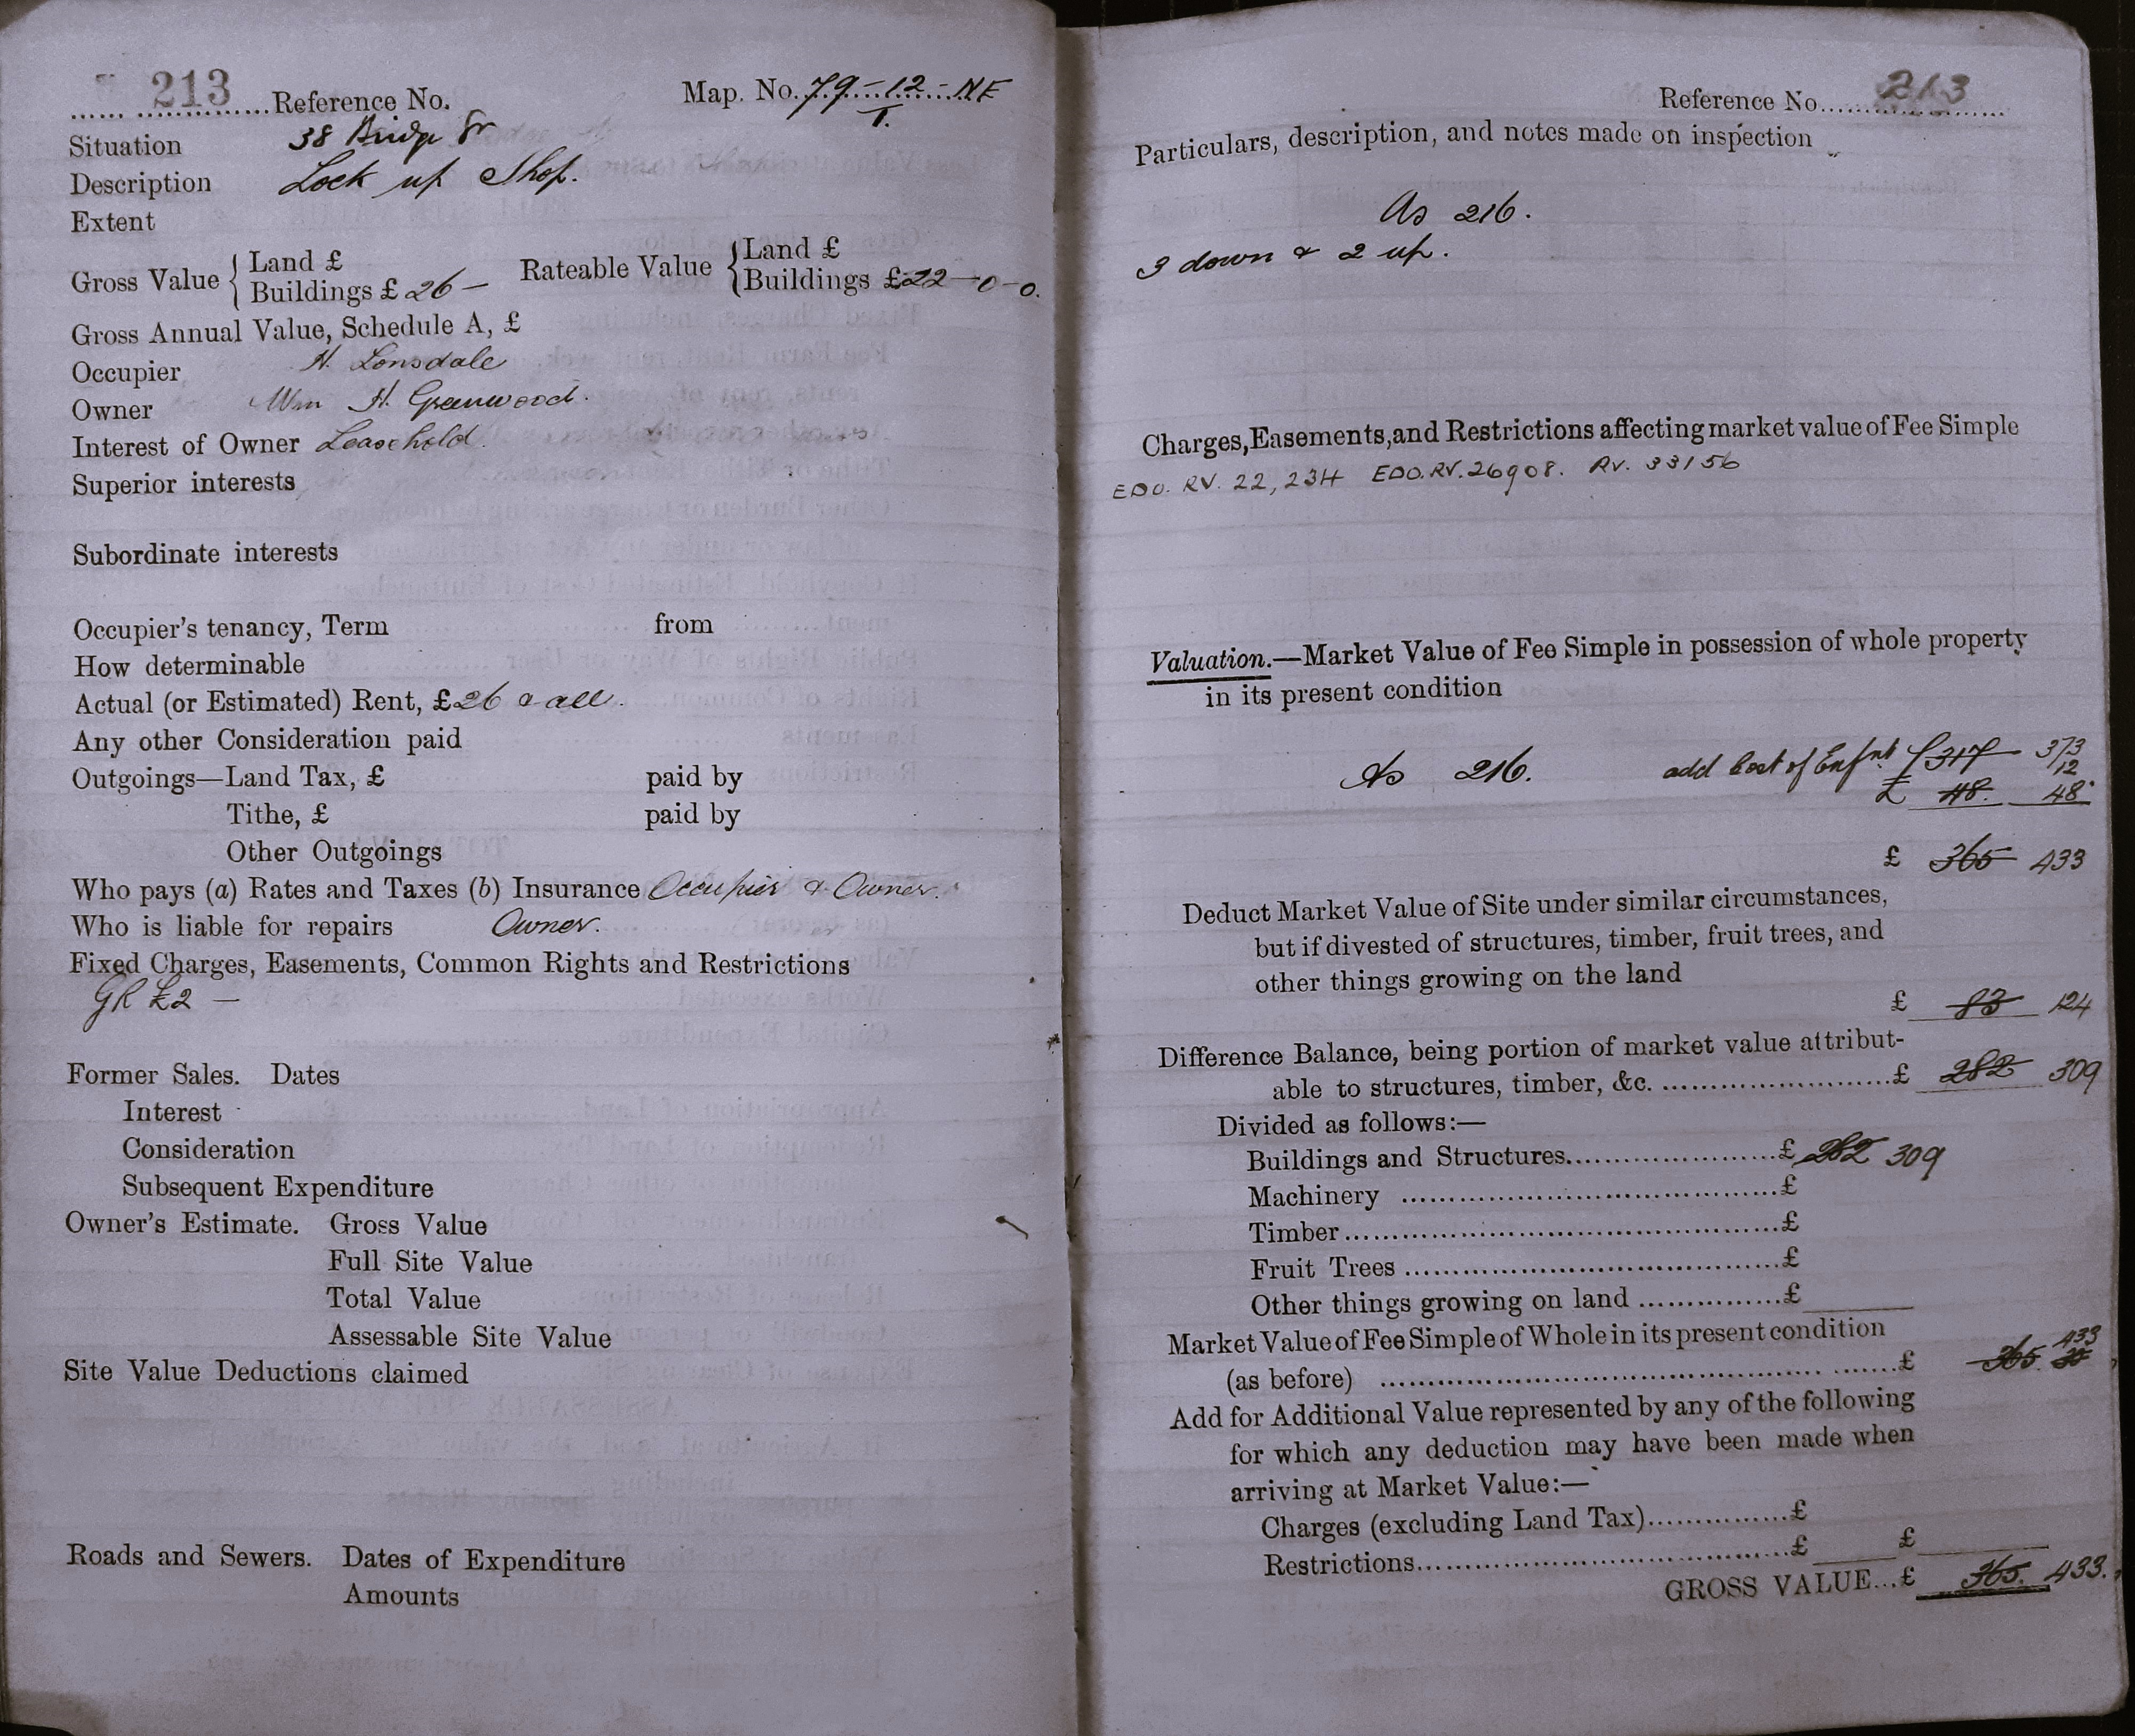 213 Reference No. Map. No. 79-12-NE
I.
Situation 38 Bridge St
Description Lock up Shop.
Extent
Gross Value { Land £
Buildings £ 26 - Rateable Value { Land £
Buildings £ 22-0-0.
Gross Annual Value, Schedule A, £
Occupier H. Lonsdale
Owner Wm H. Greenwood.
Interest of Owner Leasehold.
Superior interests
Subordinate interests
Occupier's tenancy, Term from
How determinable
Actual (or Estimated) Rent, £ 26 & all.
Any other Consideration paid
Outgoings—Land Tax, £ paid by
Tithe, £ paid by
Other Outgoings
Who pays (a) Rates and Taxes (b) Insurance Occupier & Owner.
Who is liable for repairs Owner.
Fixed Charges, Easements, Common Rights and Restrictions
GR £2 —
Former Sales. Dates
Interest
Consideration
Subsequent Expenditure
Owner's Estimate. Gross Value
Full Site Value
Total Value
Assessable Site Value
Site Value Deductions claimed
Roads and Sewers. Dates of Expenditure
Amounts
Reference No. 213
Particulars, description, and notes made on inspection
As 216.
3 down & 2 up.
Charges, Easements, and Restrictions affecting market value of Fee Simple
EDO. RV. 22,234 EDO. RV. 26908. RV. 33156
Valuation.—Market Value of Fee Simple in possession of whole property
in its present condition
As 216. add Cost of Enfnt £ 317 373
12
£ 48. 48
£ 365 433
Deduct Market Value of Site under similar circumstances,
but if divested of structures, timber, fruit trees, and
other things growing on the land
£ 83 124
Difference Balance, being portion of market value attribut-
able to structures, timber, &c. £ 282 309
Divided as follows:—
Buildings and Structures £ 282 309
Machinery £
Timber £
Fruit Trees £
Other things growing on land £
Market Value of Fee Simple of Whole in its present condition
(as before) £ 365 433
Add for Additional Value represented by any of the following
for which any deduction may have been made when
arriving at Market Value:—
Charges (excluding Land Tax) £
Restrictions £ £
GROSS VALUE... £ 365. 433.